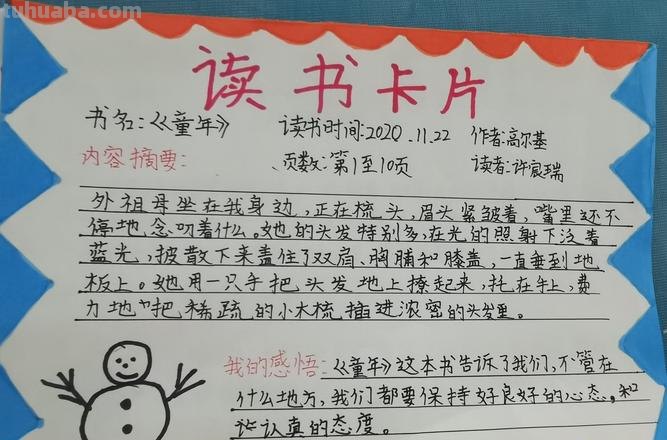 tuhuaba.com
读书卡片
书名:《童年》 读书时间:2020.11.22 作者:高尔基
内容摘要: 页数:第1至10页 读者:许宸瑞
外祖母坐在我身边,正在梳头,眉头紧皱着,嘴里还不
停地念叨着什么。她的头发特别多,在光的照射下泛着
蓝光,披散下来盖住了双肩、胸脯和膝盖,一直垂到地
板上。她用一只手把头发地上撩起来,托在手上,费
力地"把稀疏的小木梳插进浓密的头发里。
我的感悟:《童年》这本书告诉了我们,不管在
什么地方,我们都要保持好良好的心态。和
认真的态度。